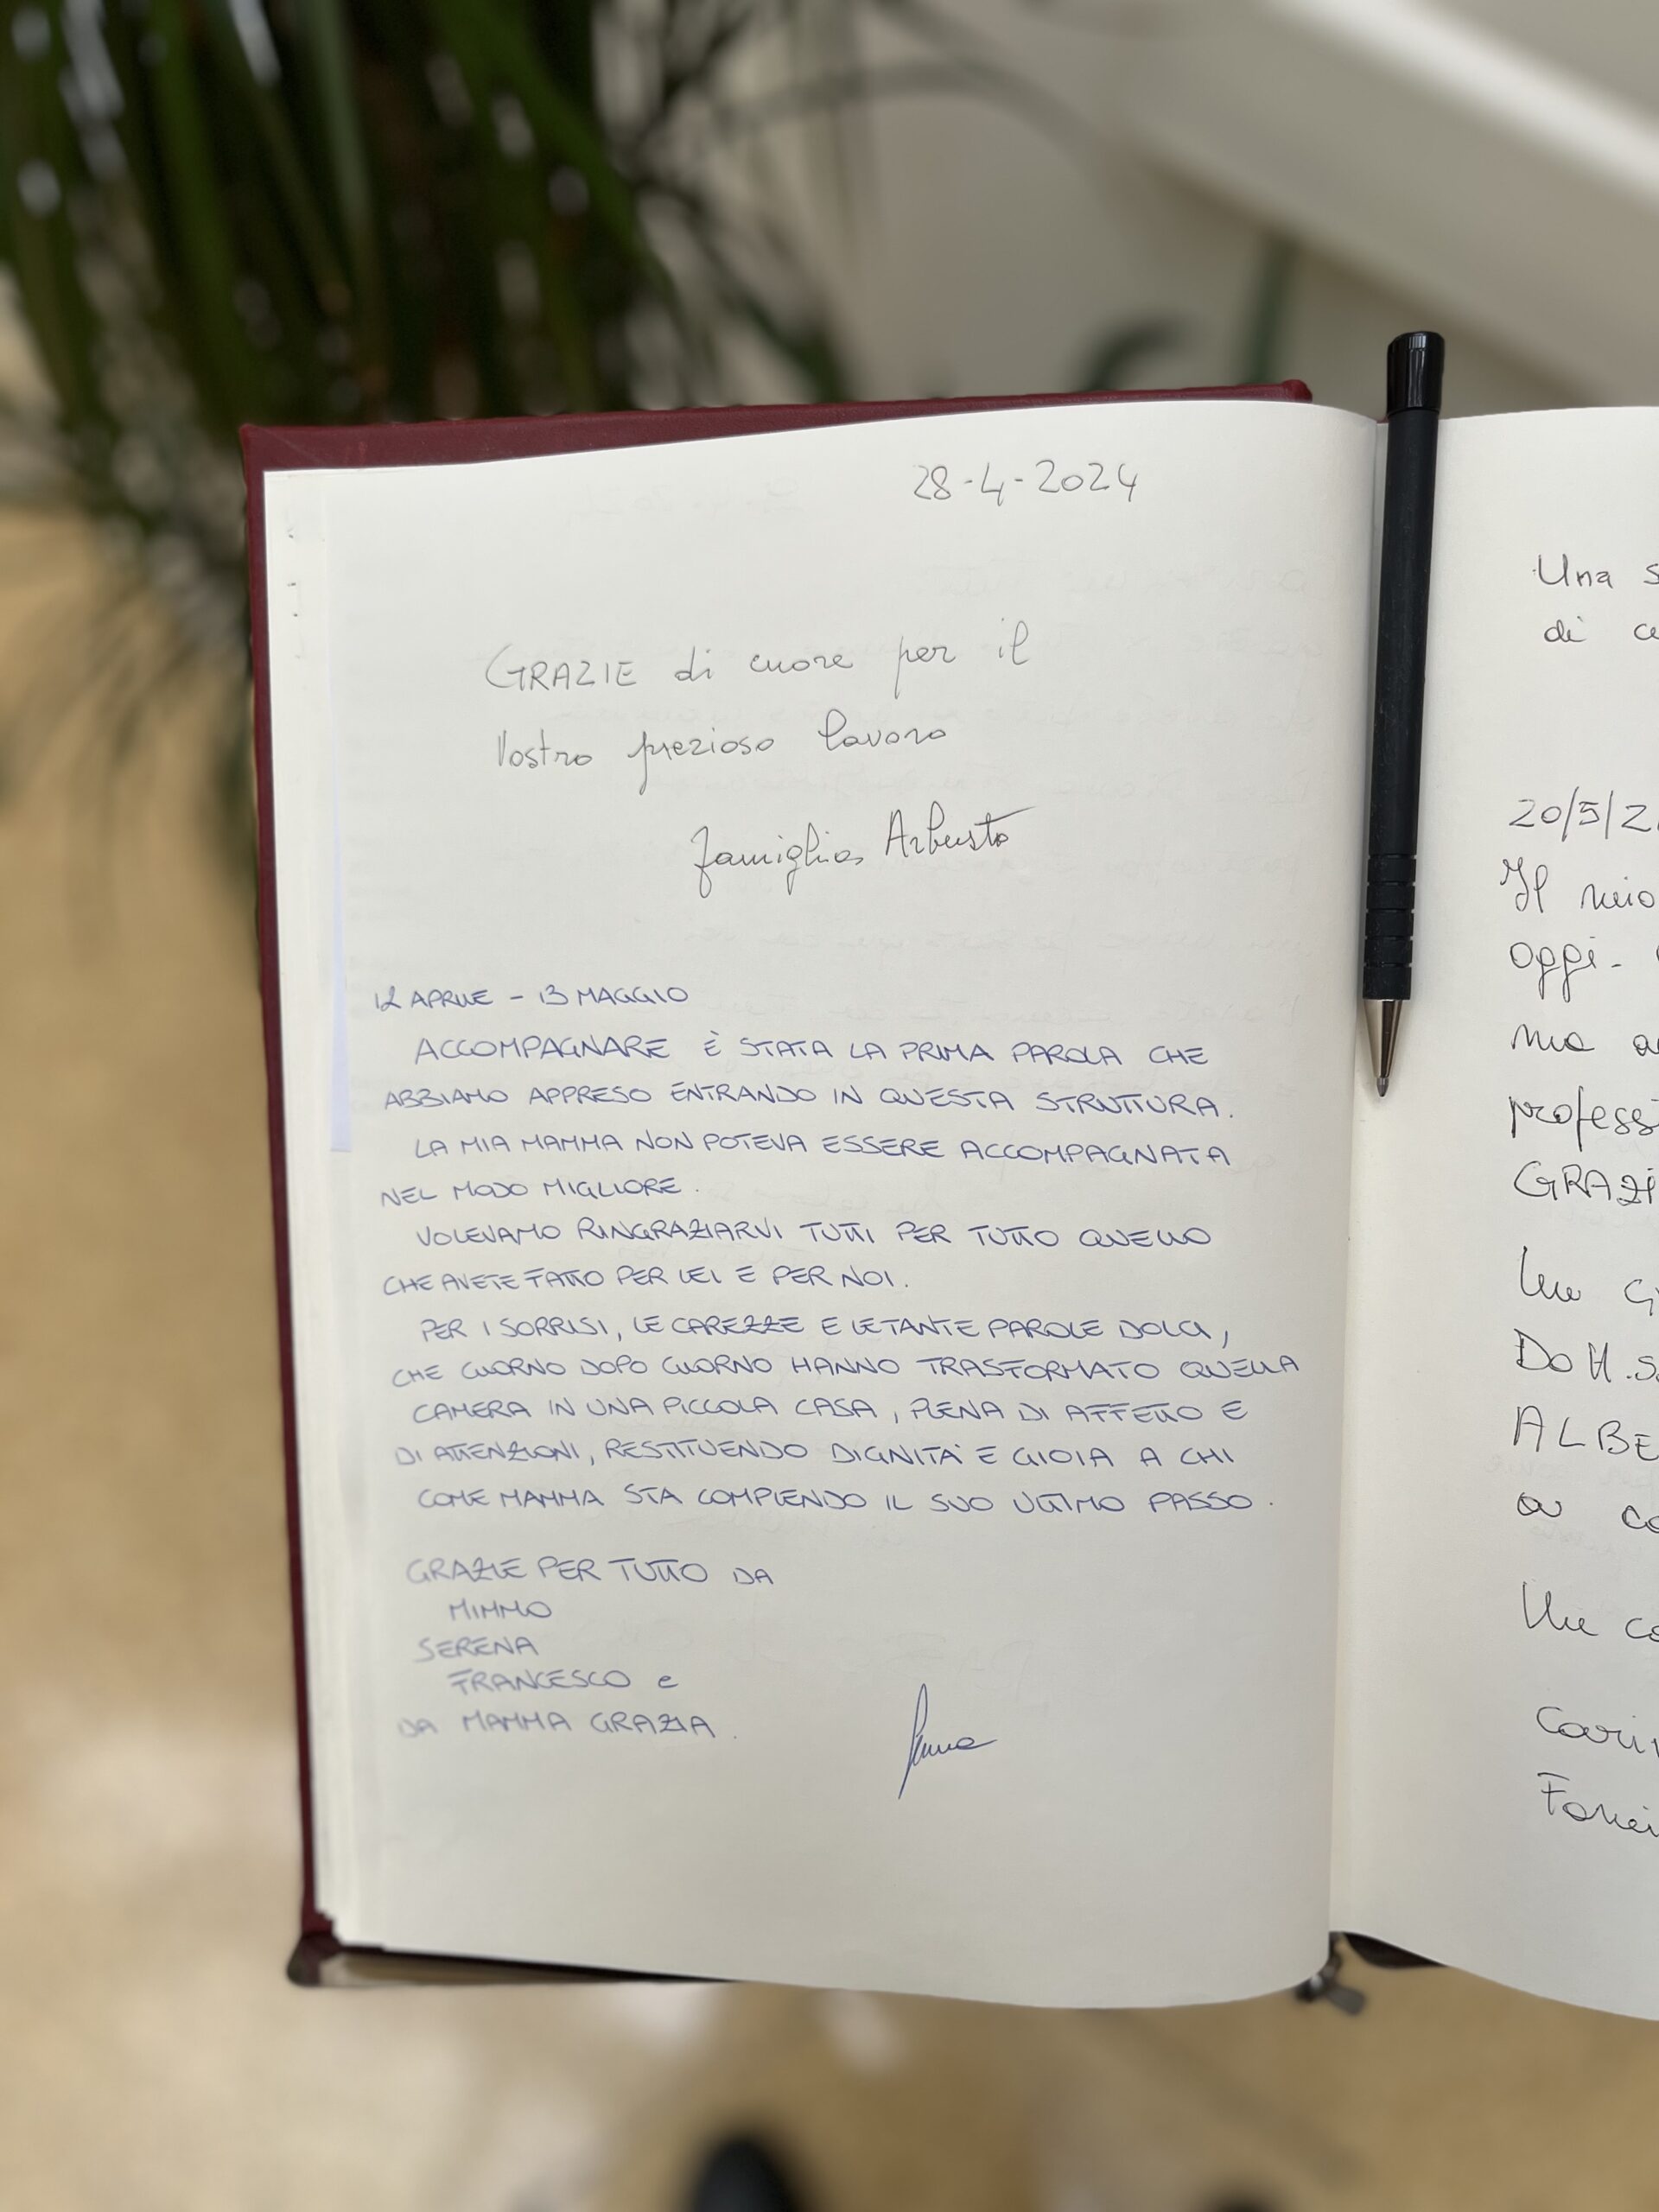 28-4-2024
GRAZIE di cuore per il
Vostro prezioso lavoro
famiglia Arbusto
12 APRILE - 13 MAGGIO
ACCOMPAGNARE È STATA LA PRIMA PAROLA CHE
ABBIAMO APPRESO ENTRANDO IN QUESTA STRUTTURA.
LA MIA MAMMA NON POTEVA ESSERE ACCOMPAGNATA
NEL MODO MIGLIORE.
VOLEVAMO RINGRAZIARVI TUTTI PER TUTTO QUELLO
CHE AVETE FATTO PER LEI E PER NOI.
PER I SORRISI, LE CAREZZE E LE TANTE PAROLE DOLCI,
CHE GIORNO DOPO GIORNO HANNO TRASFORMATO QUELLA
CAMERA IN UNA PICCOLA CASA, PIENA DI AFFETTO E
DI ATTENZIONI, RESTITUENDO DIGNITÀ E GIOIA A CHI
COME MAMMA STA COMPIENDO IL SUO ULTIMO PASSO.
GRAZIE PER TUTTO DA
MIMMO
SERENA
FRANCESCO e
DA MAMMA GRAZIA.
Una
di
20/5/2
Il mio
oggi-
professi
GRAZI
ALBE